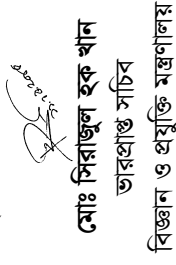 মোঃ সিরাজুল হক খান
ভারপ্রাপ্ত সচিব
বিজ্ঞান ও প্রযুক্তি মন্ত্রণালয়